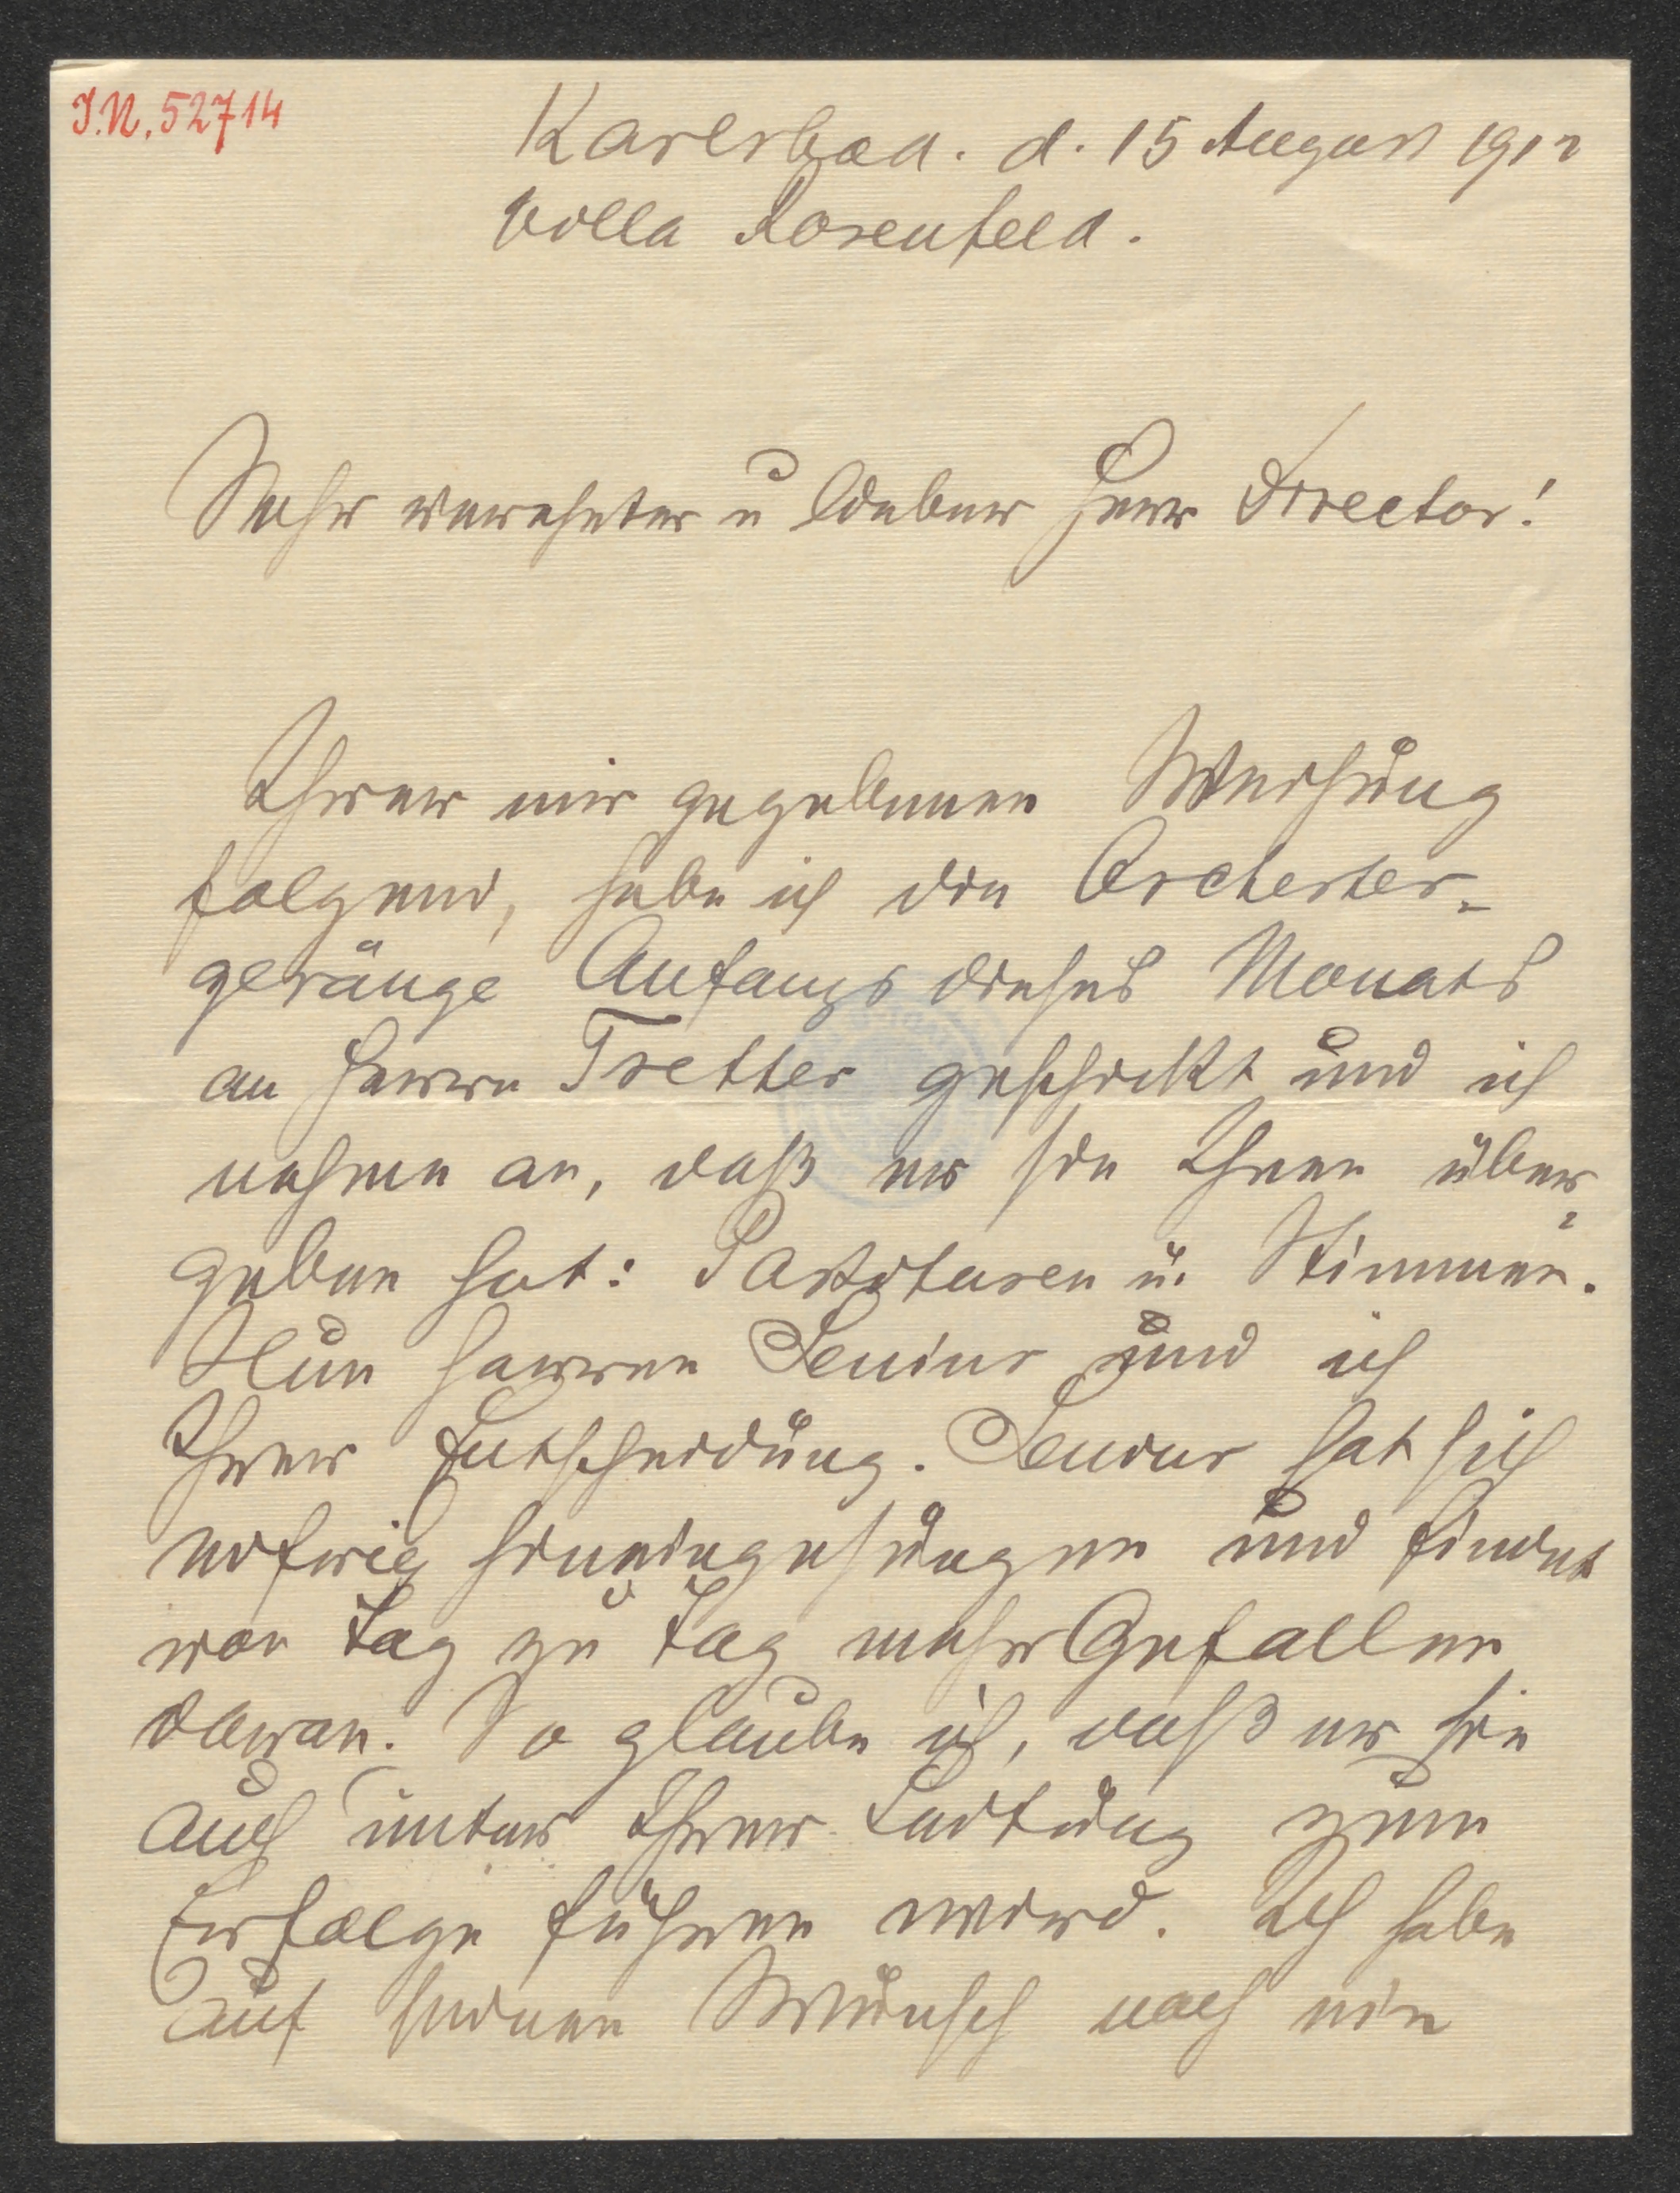 I.N. 52714
Karlsbad. d. 15 August 1912
Villa Rosenfeld.
Sehr verehrter u lieber Herr Director!
Ihrer mir gegebenen Weisung
folgend, habe ich die Orchester-
gesänge Anfangs dieses Monats
an Herrn Tretter geschickt und ich
nehme an, daß er sie Ihnen über-
geben hat: Partituren u. Stimmen.
Nun harren Senius und ich
Ihrer Entscheidung. Senius hat sich
eifrig hineingesungen und findet
von Tag zu Tag mehr Gefallen
daran. So glaube ich, daß er sie
auch unter Ihrer Leitung zum
Erfolge führen wird. Ich habe
auf seinen Wunsch noch ein